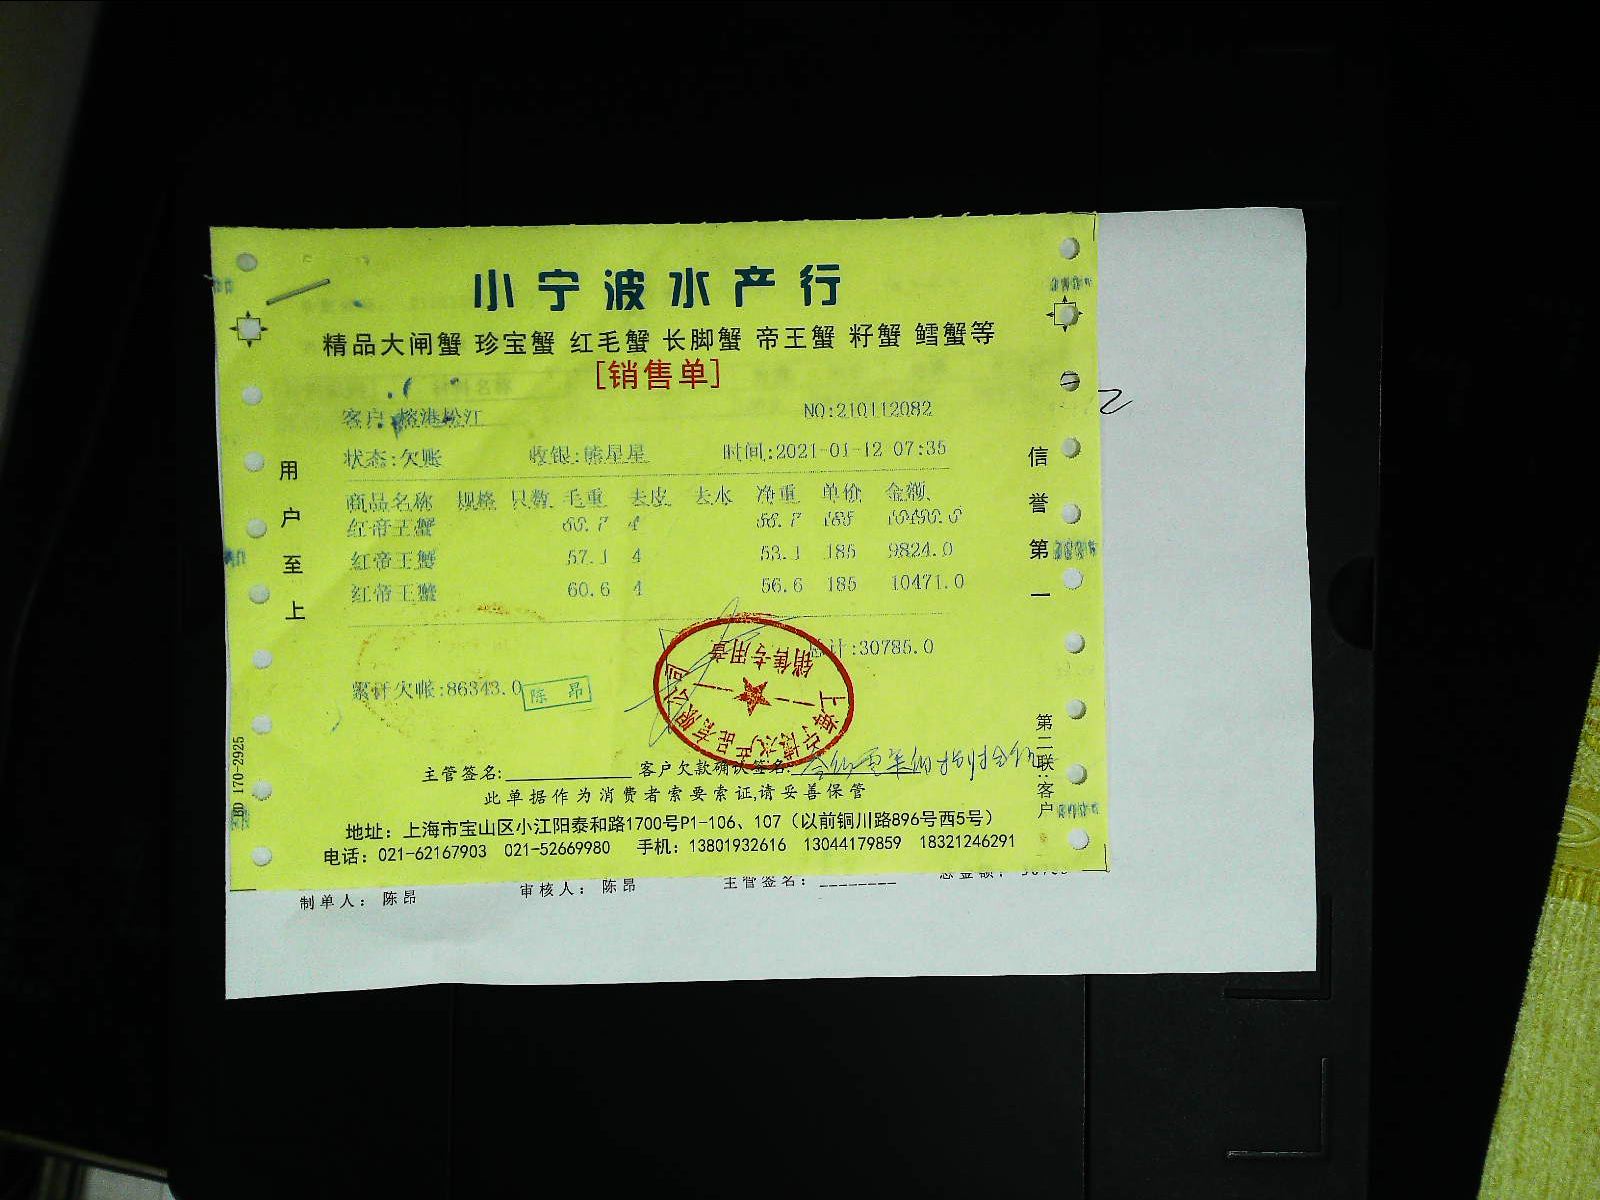 小宁波水产行
精品大闸蟹 珍宝蟹 红毛蟹 长脚蟹 帝王蟹 籽蟹 鳕蟹等
[销售单]
客户:榕港松江 NO:210112082
状态:欠账 收银:熊星星 时间:2021-01-12 07:35
商品名称 规格 只数 毛重 去皮 去水 净重 单价 金额
红帝王蟹 4 56.7 185 10490.0
红帝王蟹 57.1 4 53.1 185 9824.0
红帝王蟹 60.6 4 56.6 185 10471.0
总计:30785.0
累计欠帐:86343.0
陈昂
上海宁波水产品有限公司
销售专用章
主管签名: 客户欠款确认签名:
此单据作为消费者索要索证,请妥善保管
地址：上海市宝山区小江阳泰和路1700号P1-106、107（以前铜川路896号西5号）
电话：021-62167903 021-52669980 手机：13801932616 13044179859 18321246291
用户至上
信誉第一
第二联:客户
BD 170-2925
制单人：陈昂 审核人：陈昂 主管签名：________ 总金额：